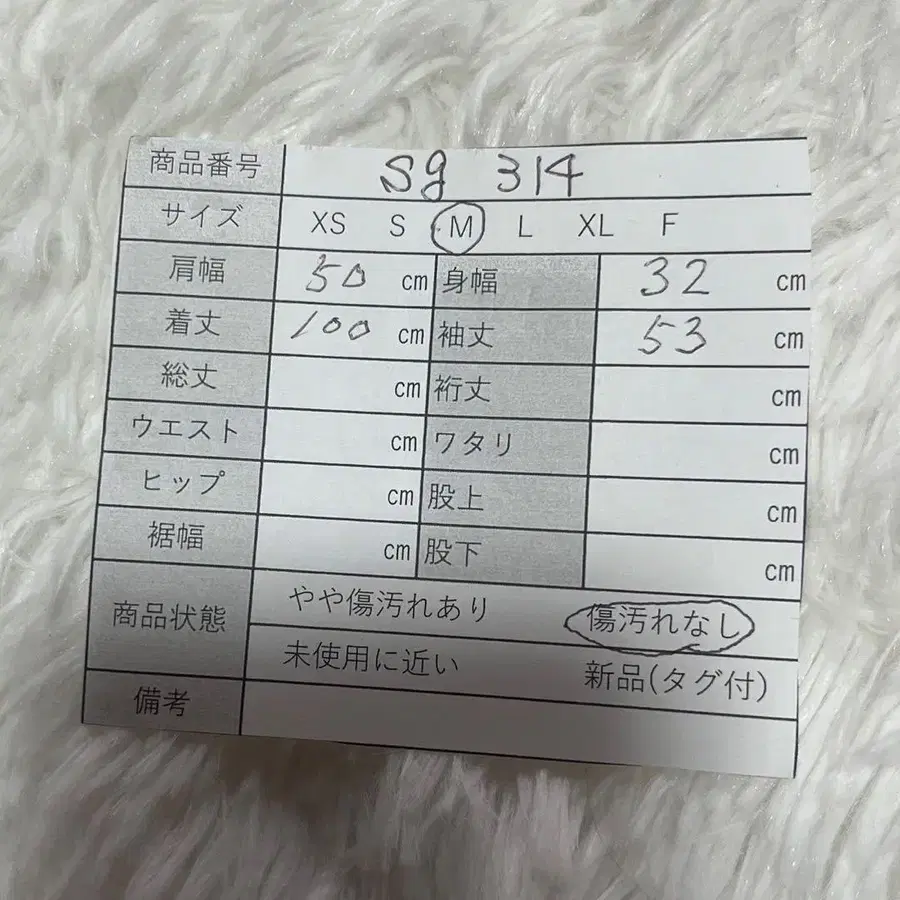 商品番号 sg 314
サイズ XS S M L XL F
肩幅 50 cm 身幅 32 cm
着丈 100 cm 袖丈 53 cm
総丈 cm 裄丈 cm
ウエスト cm ワタリ cm
ヒップ cm 股上 cm
裾幅 cm 股下 cm
商品状態 やや傷汚れあり 傷汚れなし
未使用に近い 新品(タグ付)
備考